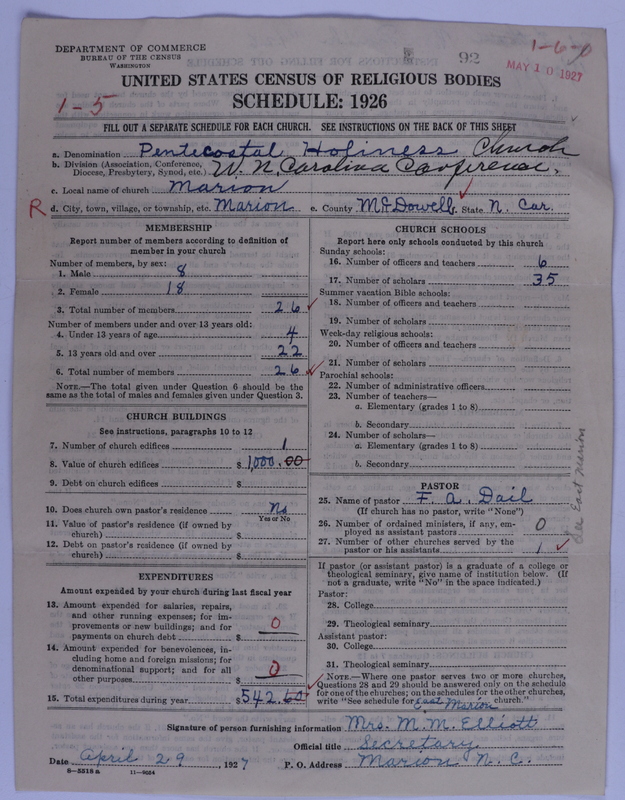 DEPARTMENT OF COMMERCE
BUREAU OF THE CENSUS
WASHINGTON
92
1-6-0
MAY 10 1927
UNITED STATES CENSUS OF RELIGIOUS BODIES
1-5
SCHEDULE: 1926
FILL OUT A SEPARATE SCHEDULE FOR EACH CHURCH. SEE INSTRUCTIONS ON THE BACK OF THIS SHEET
a. Denomination Pentecostal Holiness Church
b. Division (Association, Conference, Diocese, Presbytery, Synod, etc.) W. N. Carolina Conference.
c. Local name of church Marion
R d. City, town, village, or township, etc. Marion e. County McDowell f. State N. Car.
MEMBERSHIP
Report number of members according to definition of
member in your church
Number of members, by sex:
1. Male 8
2. Female 18
3. Total number of members 26
Number of members under and over 13 years old:
4. Under 13 years of age 4
5. 13 years old and over 22
6. Total number of members 26
NOTE.—The total given under Question 6 should be
same as the total of males and females given under Question 3.
CHURCH BUILDINGS
See instructions, paragraphs 10 to 12
7. Number of church edifices 1
8. Value of church edifices $ 1,000.00
9. Debt on church edifices $
10. Does church own pastor's residence No
Yes or No
11. Value of pastor's residence (if owned by
church) $
12. Debt on pastor's residence (if owned by
church) $
EXPENDITURES
Amount expended by your church during last fiscal year
13. Amount expended for salaries, repairs,
and other running expenses; for im-
provements or new buildings; and for
payments on church debt $ 0
14. Amount expended for benevolences, in-
cluding home and foreign missions; for
denominational support; and for all
other purposes $ 0
15. Total expenditures during year $ 542.60
CHURCH SCHOOLS
Report here only schools conducted by this church
Sunday schools:
16. Number of officers and teachers 6
17. Number of scholars 35
Summer vacation Bible schools:
18. Number of officers and teachers
19. Number of scholars
Week-day religious schools:
20. Number of officers and teachers
21. Number of scholars
Parochial schools:
22. Number of administrative officers
23. Number of teachers—
a. Elementary (grades 1 to 8)
b. Secondary
24. Number of scholars—
a. Elementary (grades 1 to 8)
b. Secondary
PASTOR
25. Name of pastor F. A. Dail
(If church has no pastor, write "None")
26. Number of ordained ministers, if any, em-
ployed as assistant pastors 0
27. Number of other churches served by the
pastor or his assistants 1
See East Marion
If pastor (or assistant pastor) is a graduate of a college or
theological seminary, give name of institution below. (If
not a graduate, write "No" in the space indicated.)
Pastor:
28. College
29. Theological seminary
Assistant pastor:
30. College
31. Theological seminary
NOTE.—Where one pastor serves two or more churches,
Questions 28 and 29 should be answered only on the schedule
for one of the churches; on the schedules for the other churches,
write "See schedule for East Marion church."
Signature of person furnishing information Mrs. M. M. Elliott
Official title Secretary.
Date April 29, 1927 P. O. Address Marion N. C.
8—5518 a 11—9054